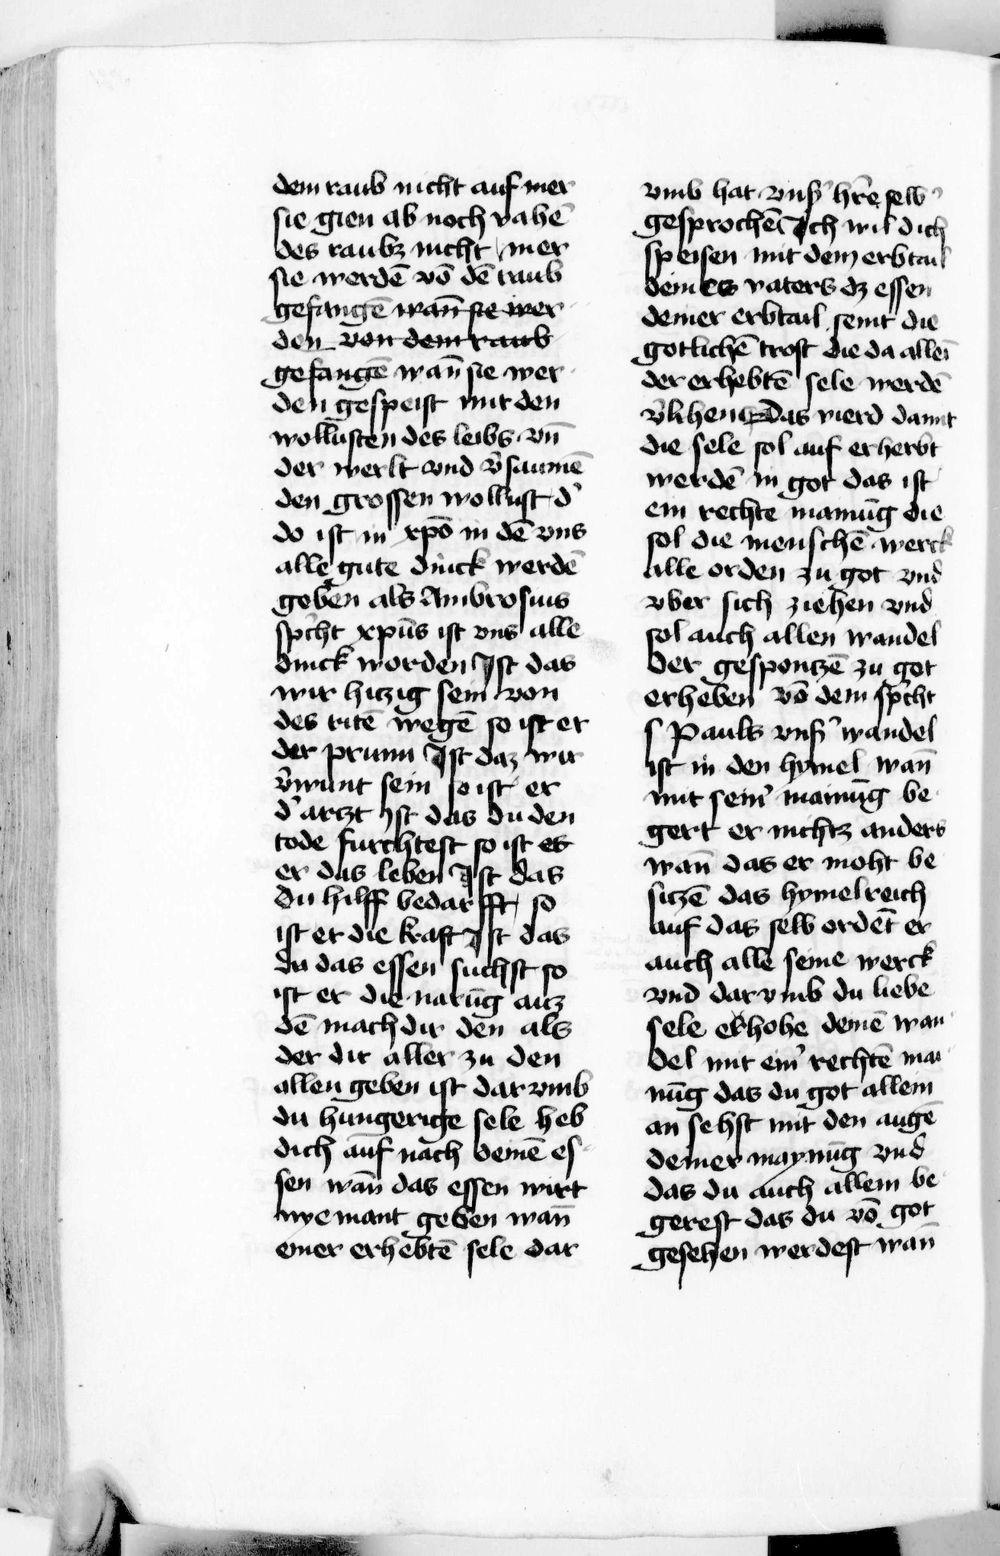 dem raub nicht auf mer
sie gien ab noch vahē
des raubz nicht mer
sie werdē vō dē raub
gefangē wan̄ sie wer
den von dem raub
gefangē wan̄ sie wer
den gespeist mit den
wollusten des leibs vn̄
der werlt vnd v̓saumē
den grossen wollust d̓
do ist in xp̄o in dē vns
alle gute dinck werdē
geben als Ambrosius
sp̄cht xp̄us ist vns alle
dinck worden Ist das
wir hiczig sein von
des ritē wegē so ist er
der prunn Ist daz wir
v̓wunt sein so ist er
d̓ arczt Ist das du den
tode furchtest so ist es
er das leben Ist das
du hilff bedarfft so
ist er die kraft Ist das
du das essen suchst so
ist er die narūg aucz
dē mach dir den als
der dir aller zu den
allen geben ist dar vmb
du hungerige sele heb
dich auf nach deinē es
sen wan̄ das essen wirt
nyemant geben wan̄
einer erhebtē sele dar
vmb hat vnß̓ hr̄e selb
gesprochē Ich wil dich
speisen mit dem erbtail
deines vaters dz essen
deiner erbtail seint die
gotlichē trost die da allei̅
der erhebtē sele werdē
v̓lihen Das vierd damit
die sele sol auf erherbt
werdē in got das ist
ein rechte mainūg die
sol die menschē werck
alle orden zu got vnd
vber sich ziehen vnd
sol auch allen wandel
der gesponczē zu got
erheben vō dem sp̄cht
s Pauls vnß̓ wandel
ist in den hymel wan̄
mit sein̓ mainūg be
gert er nichtz anders
wan̄ das er moht be
siczē das hymelreich
auf das selb ordēt er
auch alle seine werck
vnd dar vmb du liebe
sele erhohe deinē wan
del mit ein̓ rechtē mai
nūg das du got allein
an sehst mit den augē
deiner maynūg vnd
das du auch allein be
gerest das du vō got
gesehen werdest wan̄